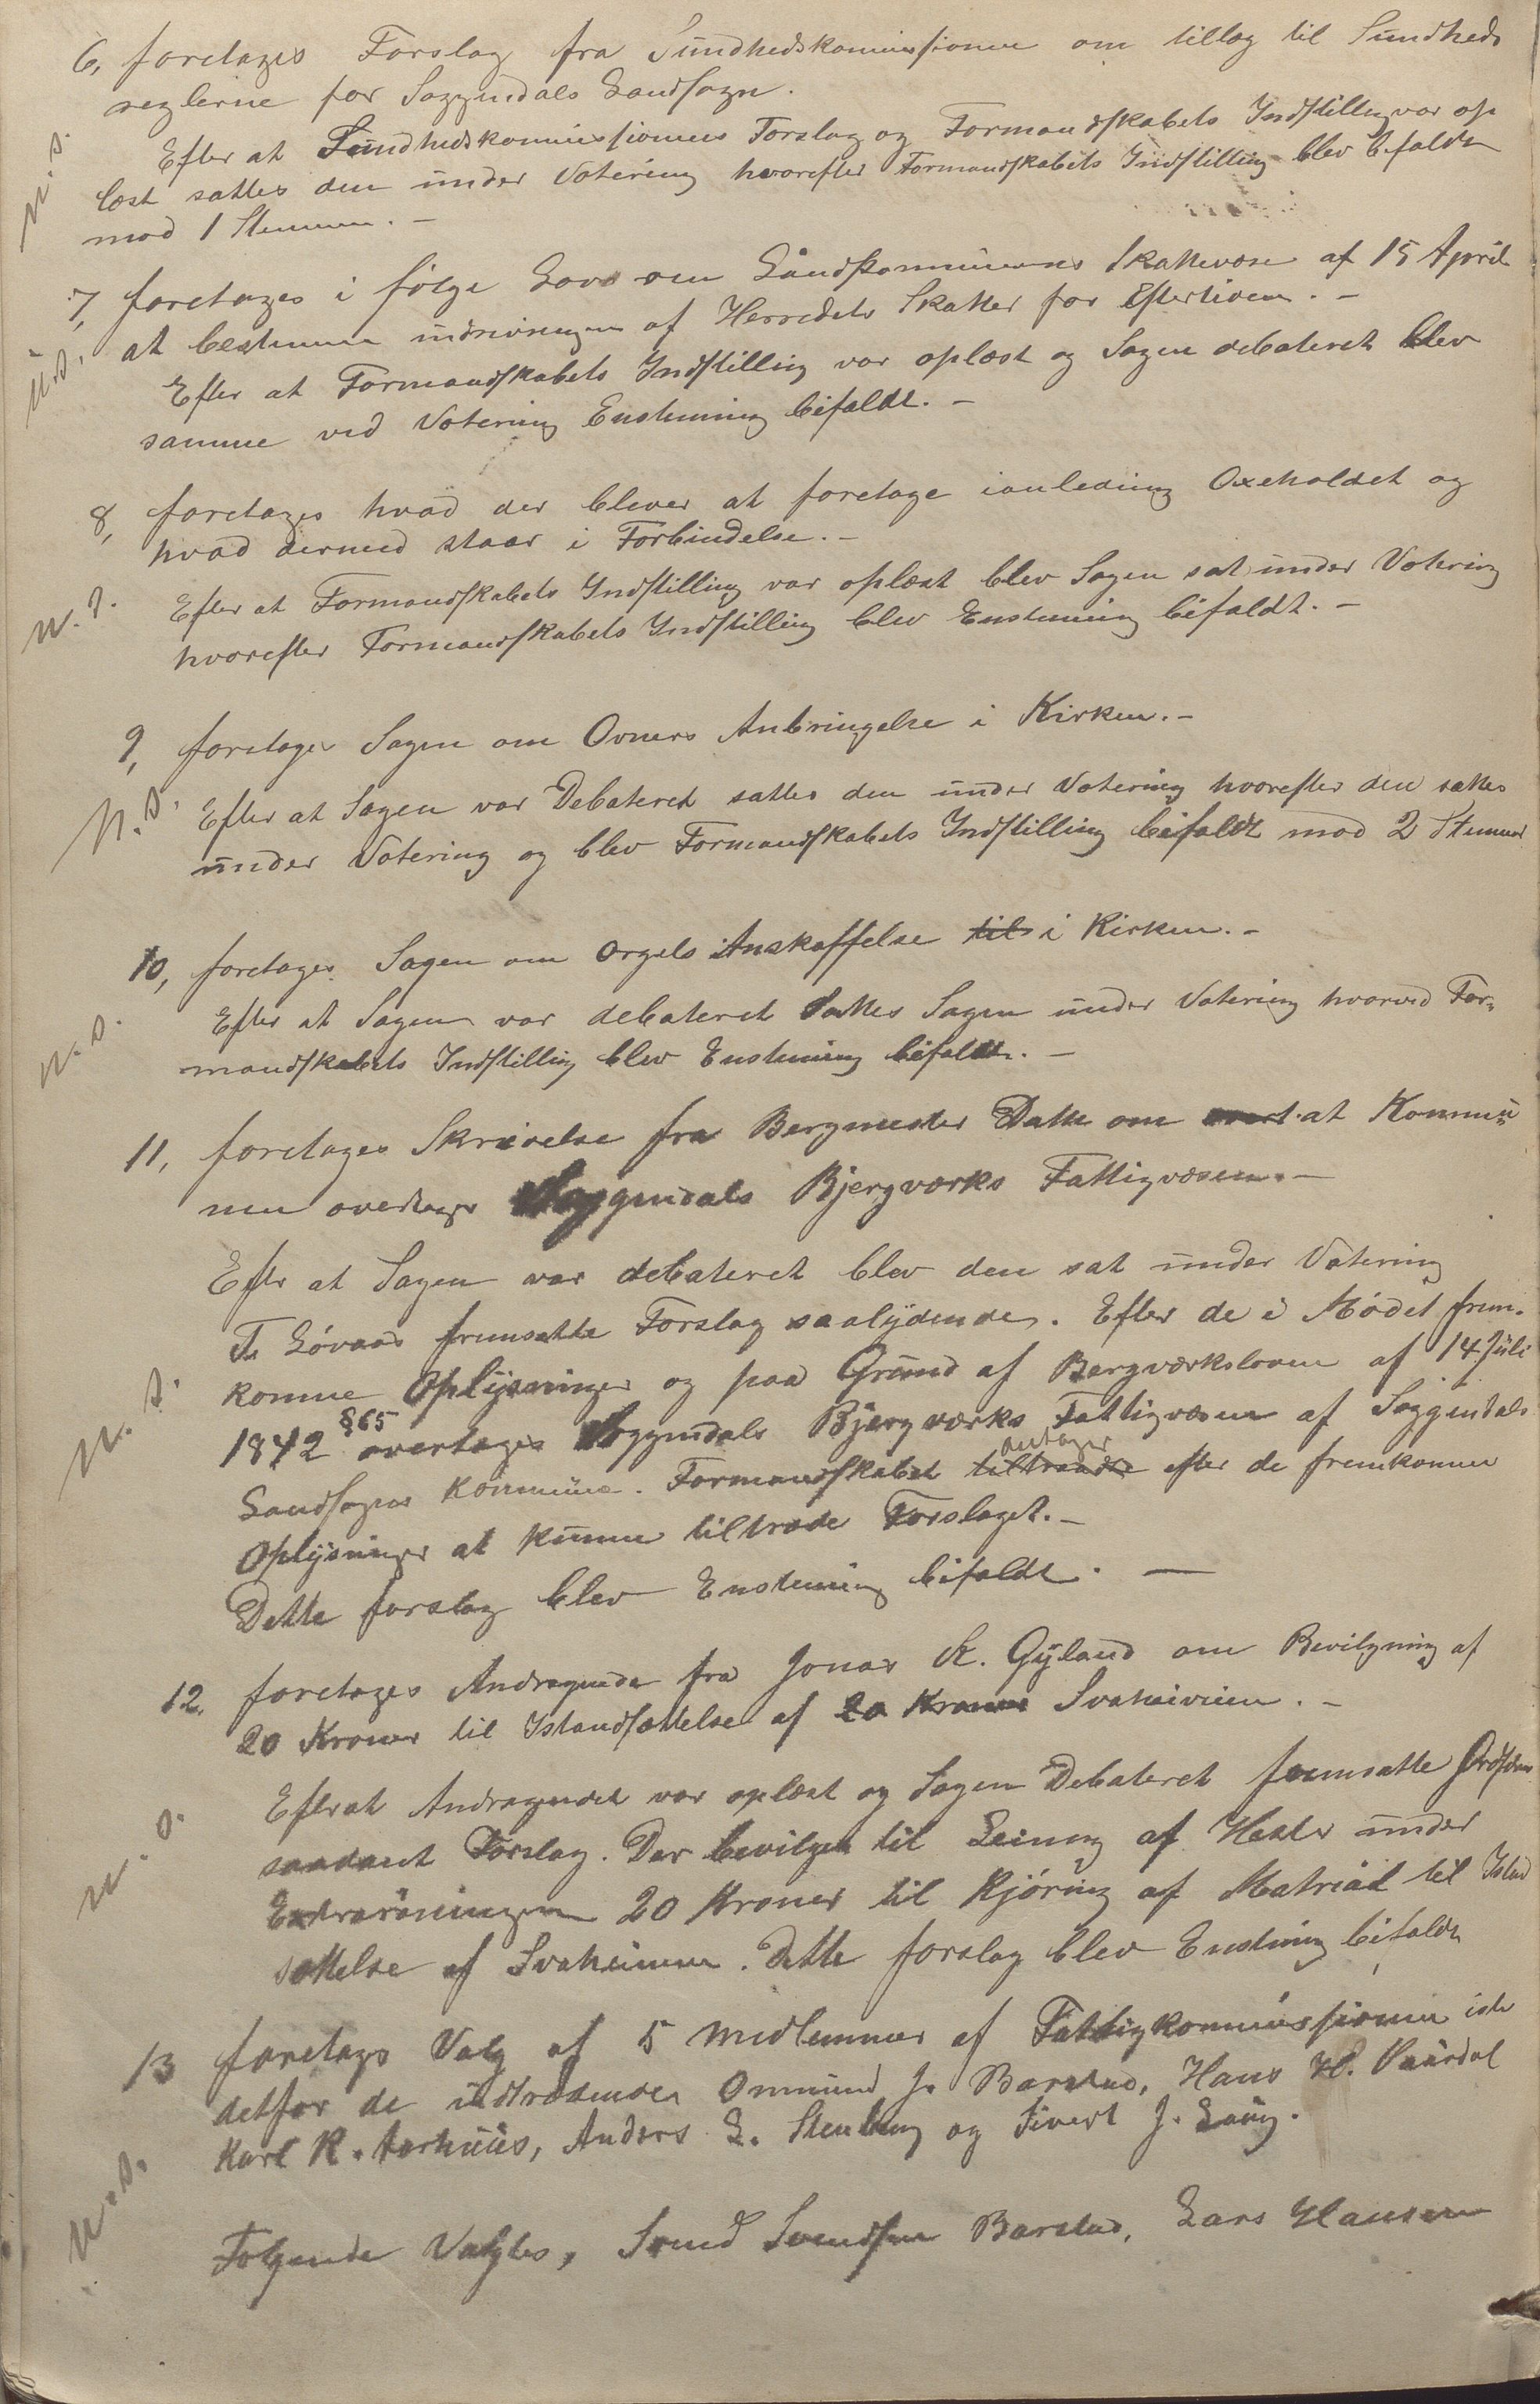 6, foretages Forslag fra Sundhedskommissionen om tillæg til Sundheds
reglerne for Soggendals Landsogn.
Efter at Sundhedskommissionens Forslag og Formandskabets Indstilling var op
læst sattes den under Votering hvorefter Formandskabets Indstilling blev bifaldt
mod 1 Stemme. –
u. s.
7, foretages i følge Lov om Landkommunernes Skattevæsen af 15 April
at bestemme inddrivningen af Herredets Skatter for Eftertiden. –
u. s.
Efter at Formandskabets Indstilling var oplæst og Sagen debateret blev
samme ved Votering Enstemmig bifaldt. –
8, foretages hvad der blever at foretage ianledning Oxeholdet og
hvad dermed staar i Forbindelse. –
u. s.
Efter at Formandskabets Indstilling var oplæst blev Sagen sat under Votering
hvorefter Formandskabets Indstilling blev Enstemmig bifaldt. –
9, foretages Sagen om Ovners Anbringelse i Kirken. –
u. s.
Efter at Sagen var Debateret sattes den under Votering hvorefter den sattes
under Votering og blev Formandskabets Indstilling bifaldt mod 2 Stemmer
10, foretages Sagen om Orgels Anskaffelse til i Kirken. –
u. s.
Efter at Sagen var debateret Sattes Sagen under Votering hvorved For-
mandskabets Indstilling blev Enstemmig bifaldt. –
11, foretages Skrivelse fra Bergmester Dahll om at Kommu-
nen overtager Soggendals Bjergværks Fattigvæsen. –
Efter at Sagen var debateret blev den sat under Votering
T. Løvaas fremsatte Forslag saalydende. Efter de i Mødet frem-
komne Oplysninger og paa Grund af Bergværksloven af 14 Juli
u. s.
1842 §65 overtages Soggendals Bjergværks Fattigvæsen af Soggendals
Landsogns Kommune. Formandskabet tiltraadte antager efter de fremkomne
Oplysninger at kunne tiltræde Forslaget. –
Dette forslag blev Enstemmig bifaldt. –
12. foretages Andragende fra Jonas K. Gyland om Bevilgning af
20 Kroner til Istandsættelse af 20 Kroner Svaheiveien. –
u. s.
Efterat Andragendet var oplæst og Sagen Debateret fremsatte Ordføren
saadant Forslag. Der bevilges til Leining af Hester under
Extraroningen 20 Kroner til Kjøring af Matrial til Istand
sættelse af Svaheiveien. Dette forslag blev Enstemig bifaldt
13 foretages Valg af 5 medlemmer af Fattigkommissionen iste
detfor de udtrædende Ommund J. Barstad, Hans H. Vaardal
Karl R. Aarhuus, Anders L. Stenberg og Sivert J. Haug.
u. s.
Følgende Valgtes, Svend Svendsen Barstad, Lars Hansen